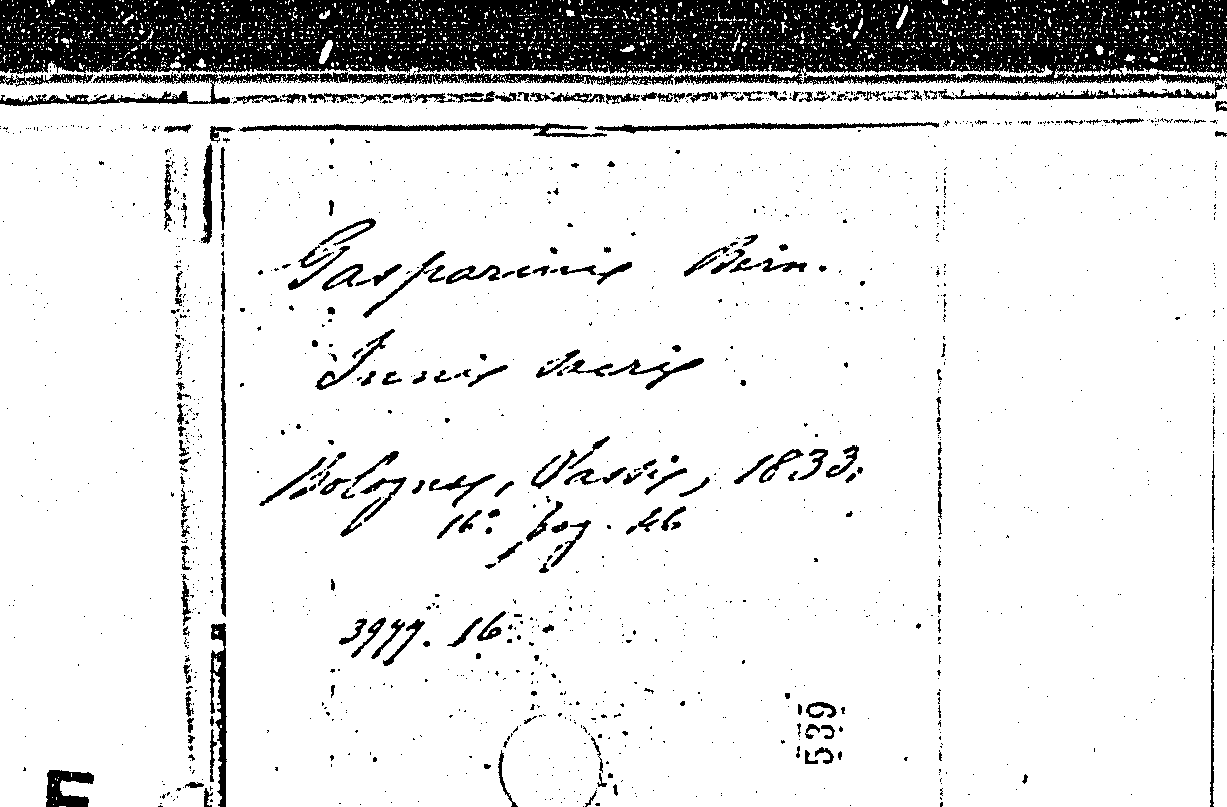 Gasparini Bern.
Inni sacri
Bologna, Sassi, 1833.
16° pag. 46
3977. 16
539
E